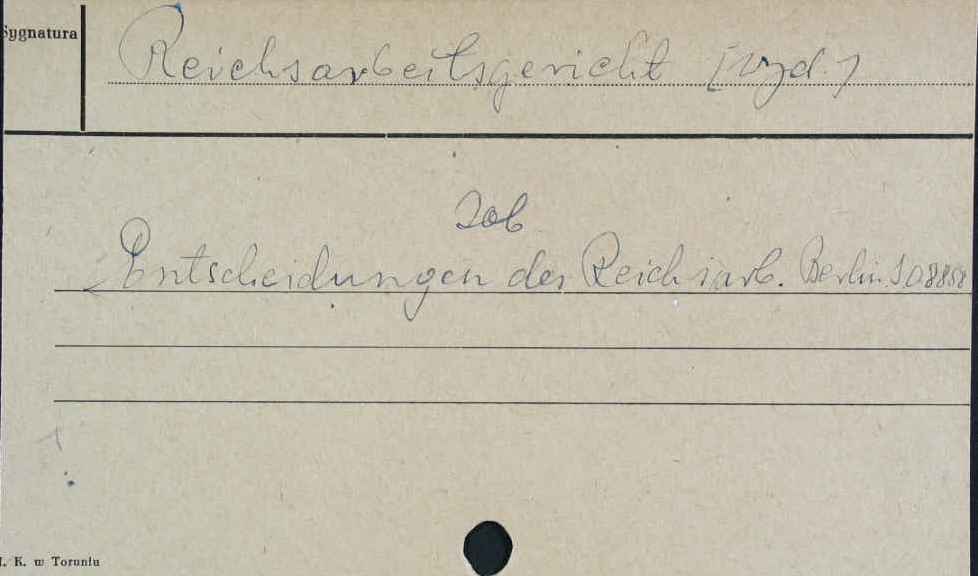 Sygnatura
Reichsarbeitsgericht [wyd.]
Zob
Entscheidungen des Reichsarb. Berlin
K. w Toruniu